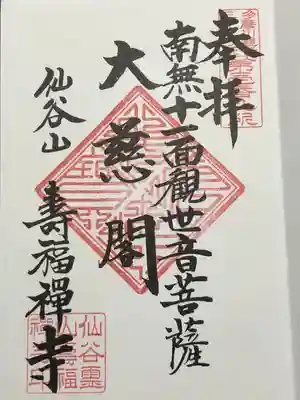 奉拝
南無十一面観世音菩薩
大慈閣
仙谷山
壽福禪寺